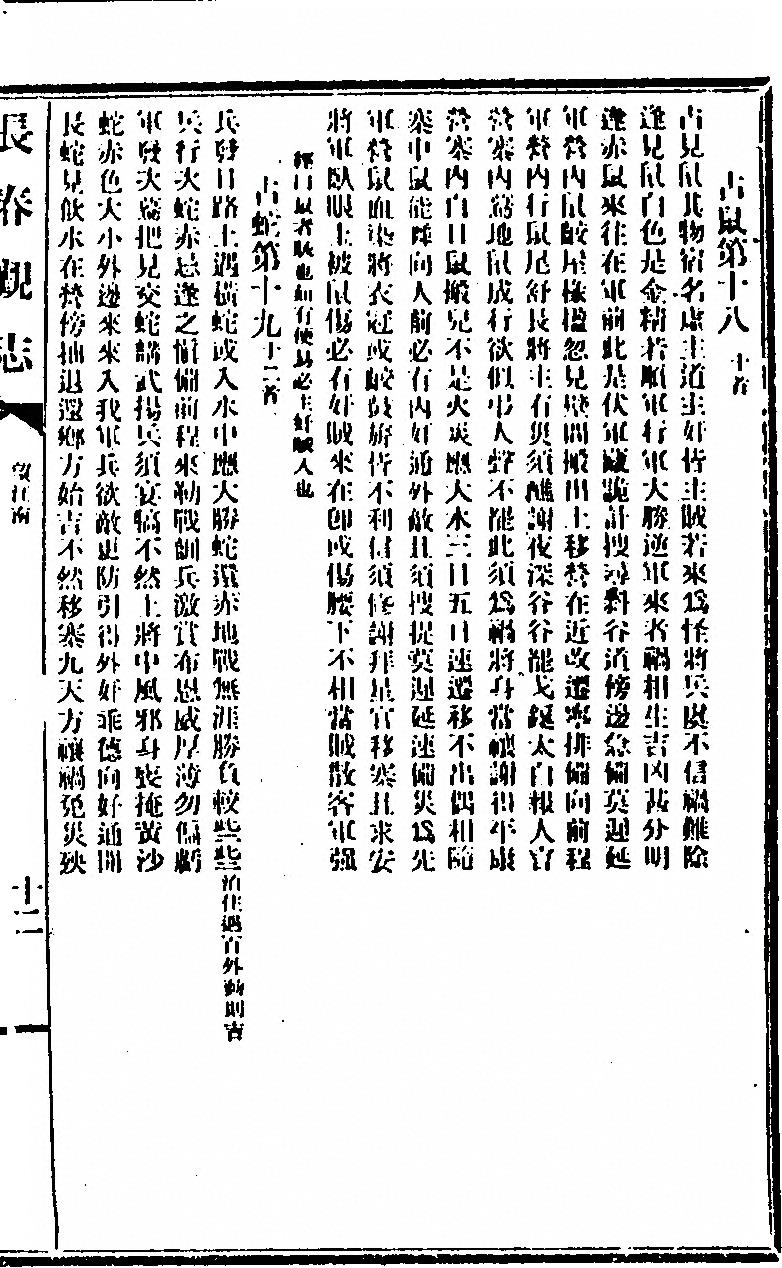 占鼠第十八 十首
占見鼠其物宿名虛主道主奸皆主賊若來為怪將兵處不信禍難除
逢見鼠白色是金精若順軍行軍大勝逆軍來者禍相生吉凶甚分明
逢赤鼠來往在軍前此是伏軍藏詭計搜尋料谷道傍邊急備莫遲延
軍營內鼠齩屋椽楹忽見壁間搬出土移營在近改遷寧排備向前程
軍營內行鼠尾舒長將主有災須醮謝夜深谷谷罷戈鋋太白報人官
營寨內窩地鼠成行欲似弔人聲不罷此須為禍將身當禳謝得平康
營寨內白日鼠搬兒不是火災應大水三日五日速遷移不出偶相隨
寨中鼠能舞向人前必有內奸通外敵且須搜捉莫遲延速備災為先
軍營鼠血染將衣冠或齩鼓旂皆不利信須修謝拜星官移寨且求安
將軍臥眼上被鼠傷必有奸賊來在即或傷腰下不相當賊散客軍强
經曰鼠者賊也如有便易必主奸賊人也
占蛇第十九 十二首
兵發日路上遇橫蛇或入水中應大勝蛇還赤地戰無涯勝負較些些 泊住過百外動則吉
兵行次蛇赤忌逢之慎備前程來勒戰訓兵激賞布恩威厚薄勿偏虧
軍發次驀把見交蛇講武揚兵須宴犒不然上將中風邪身喪掩黃沙
蛇赤色大小外邊來來入我軍兵欲敵更防引得外奸乖德向好通開
長蛇見飲水在營傍抽退還鄉方始吉不然移寨九天方禳禍免災殃
長春觀志
望江南
十二